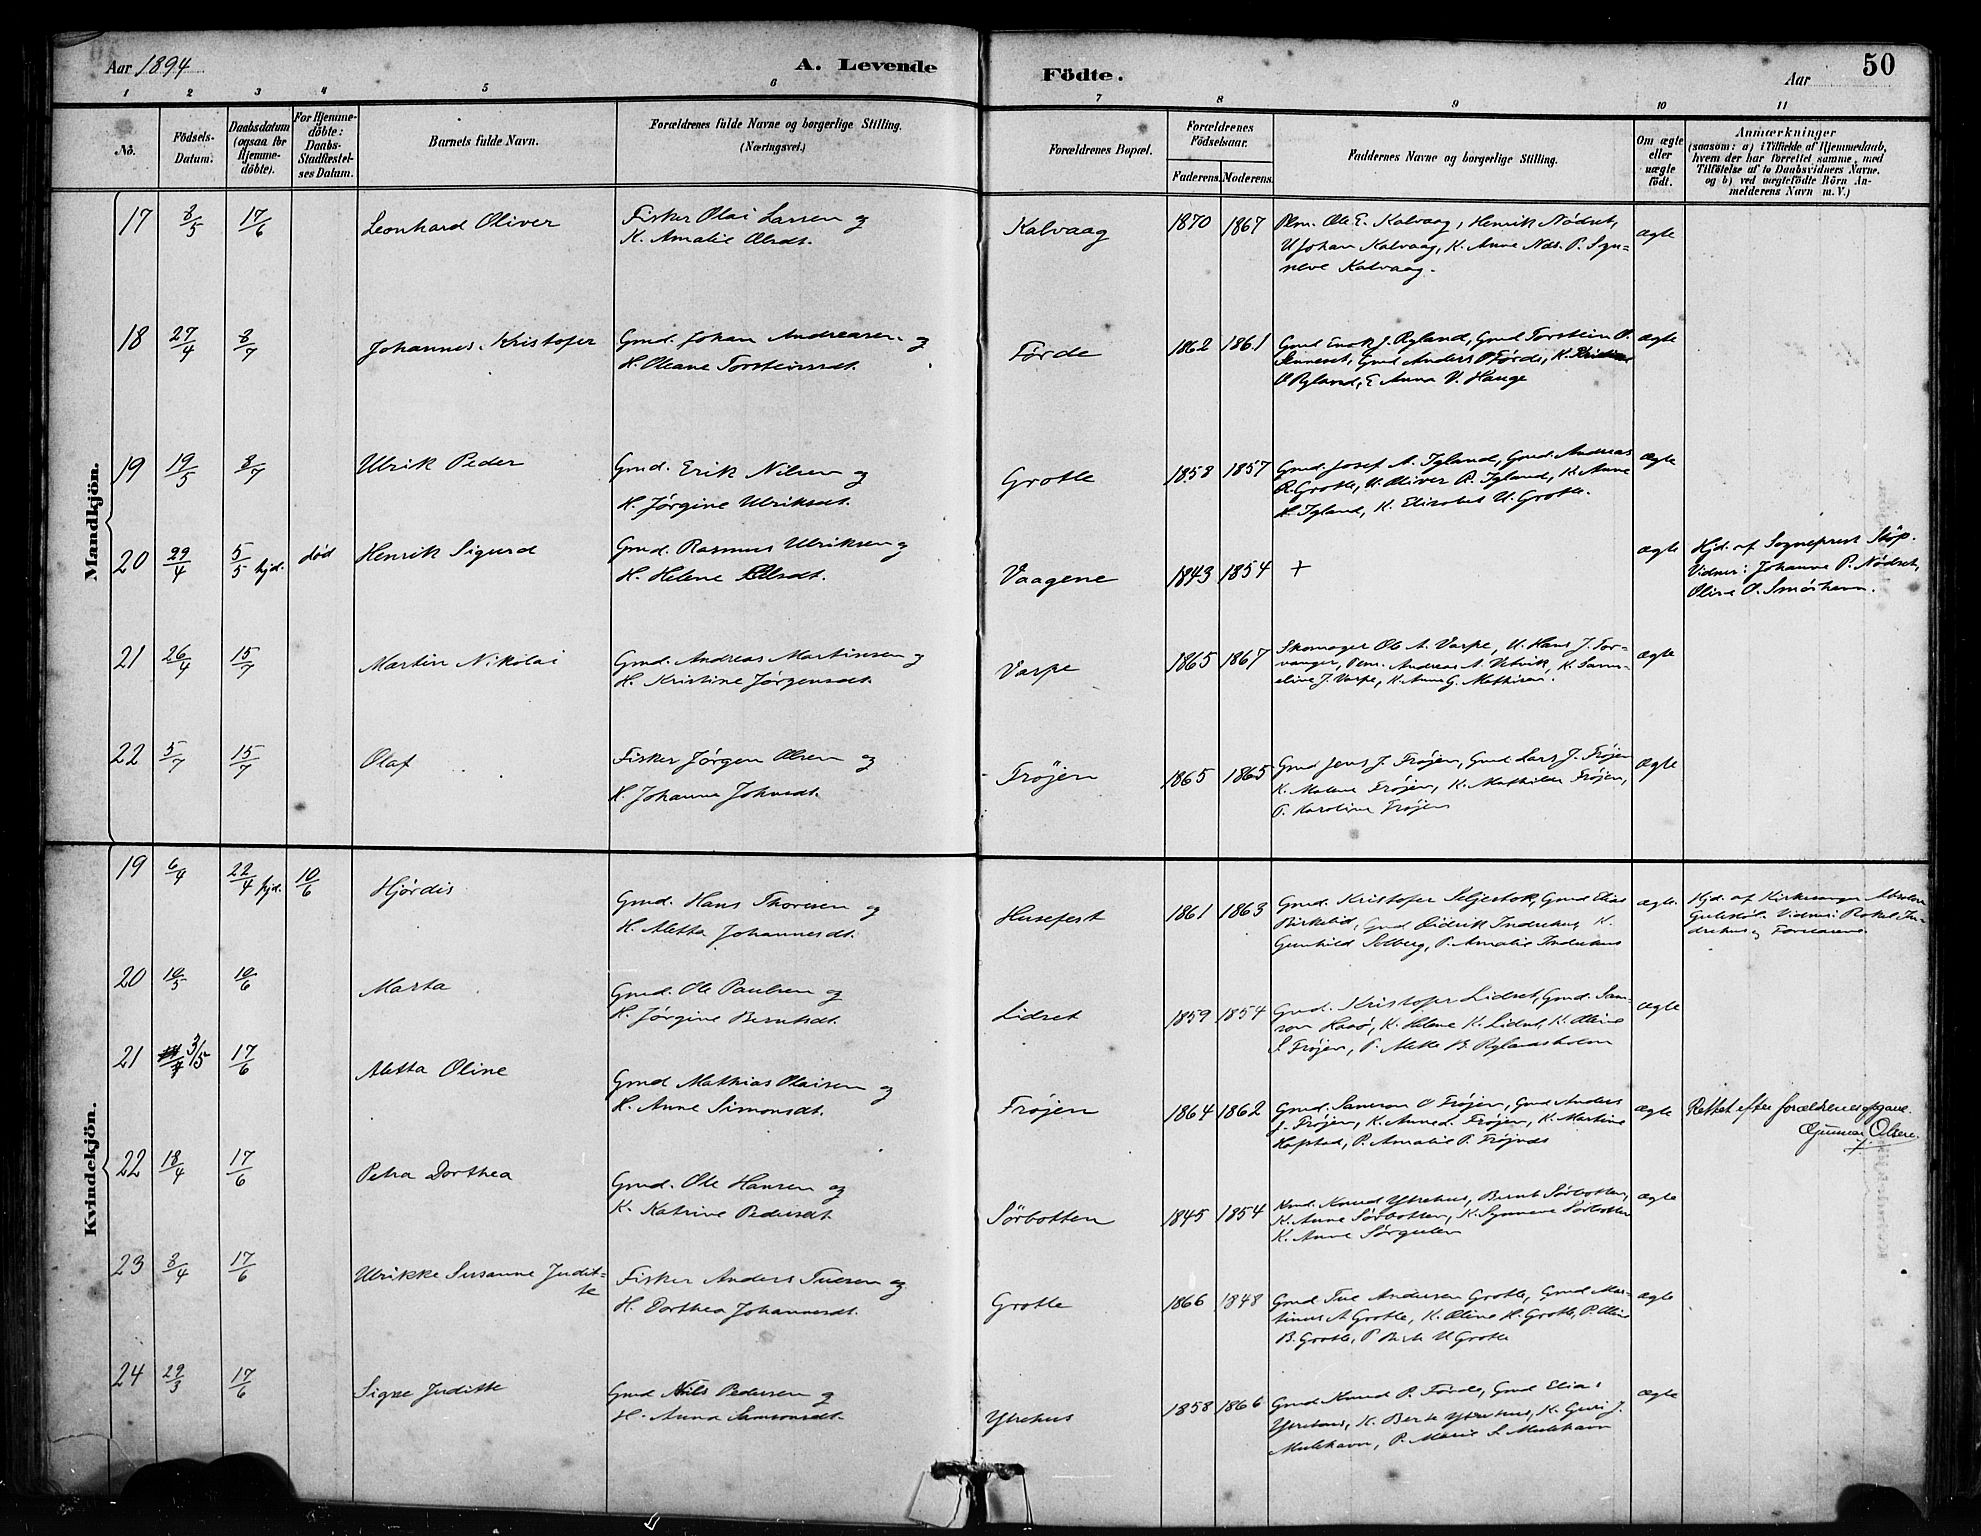 Aar 1894
A. Levende Födte.
Aar
50
1 2 3 4 5 6 7 8 9 10 11
No.
Födsels-Datum.
Daabsdatum (ogsaa for Hjemmedöbte).
For Hjemmedøbte: Daabs-Stadfæstelses Datum.
Barnets fulde Navn.
Forældrenes fulde Navne og borgerlige Stilling. (Næringsvei.)
Forældrenes Bopæl.
Forældrenes Födselsaar.
Faderens. Moderens.
Faddernes Navne og borgerlige Stilling.
Om ægte eller uægte födt.
Anmærkninger
(saasom: a) i Tilfælde af Hjemmedaab, hvem der har forrettet samme, med Tilföielse af to Daabsvidners Navne. og b) ved uægtefödte Börn Anmelderens Navn m. V.)
Mandkjön.
17 8/5 17/6 Leonhard Oliver Fisker Olai Larsen og Kalvaag 1870 1867 Plm. Ole E. Kalvaag, Henrik Nødset, ægte
K. Amalie Olsdt. U Johan Kalvaag, K. Anne Nds. P. Synneve Kalvaag.
18 27/4 8/7 Johannes Kristofer Gmd. Johan Andreasen og Førde 1862 1861 Gmd Enok J. Ryland, Gmd Torstein O. ægte
H. Oleane Torsteinsdt. Gmd Anders Førde, K.
O Ryland, E Anna V. Hauge
19 19/5 8/7 Ulrik Peder Gmd. Erik Nilsen og Grotle 1858 1857 Gmd. Josef A. Igland, Gmd. Andreas ægte
H. Jørgine Ulriksdt. R. Grotle, U. Oliver R. Igland, K. Anne
H. Igland, K. Elisabet U. Grotle.
20 29/4 5/5 hjd. død Henrik Sigurd Gmd. Rasmus Ulriksen og Vaagene 1843 1854 + ægte Hjd. af Sogneprest Støp.
H. Helene Olsdt. Vidner: Johanne P. Nødset,
Oline O. Smørhavn.
21 26/4 15/7 Martin Nikolai Gmd. Andreas Martinsen og Varpe 1865 1867 Skomager Ole A. Varpe, U. Hans J. Torvanger, ægte
H. Kristine Jørgensdt. Andreas A. K. Samueline J. Varpe, K. Anne G. Mathisen.
22 5/7 15/7 Olaf Fisker Jørgen Olsen og Frøjen 1865 1865 Gmd Jens J. Frøjen, Gmd Lars J. Frøjen ægte
H. Johanne Johnsdt. K. Malene Frøjen, K. Mathilde Frøjen,
P. Karoline Frøjen
Kvindekjön.
19 6/4 22/4 hjd. 10/6 Hjørdis Gmd. Hans Thoresen og Husefest 1861 1863 Gmd. Kristofer Seljestok, Gmd Elias ægte Hjd. af Kirkesanger
H. Aletta Johannesdt. Birkelid, Gmd Didrik Indrehus, K.
Gunhild Solberg, P. Amalie Indrehus
20 10/5 10/6 Marta Gmd. Ole Paulsen og Lidset 1859 1854 Gmd. Kristofer Lidset, Gmd. Samson ægte
H. Jørgine Berntsdt. K. Helene K. Lidset, K. Oline
S. Frøjen, P. Mette B. Rylandsholm
21 3/5 17/6 Aletta Oline Gmd Mathias Olaisen og Frøjen 1864 1862 Gmd. Samson O Frøjen, Gmd Anders ægte Rettet efter forældrenes opgave.
H. Anne Simonsdt. J. Frøjen, K. Anne J. Frøjen, K. Martine Gunnar Olsen
Hopstad, P. Amalie P. Frøjnes
22 18/4 17/6 Petra Dorthea Gmd. Ole Hansen og Sørbotten 1845 1854 Gmd. Knud Ytrehus, Bernt Sørbotten, ægte
K. Katrine Pedersdt. K. Anne Sørbotten, K. Synneve Sørbotten
K. Anne Sørgulen
23 8/4 17/6 Ulrikke Susanne Juditte Fisker Anders Tuesen og Grotle 1866 1848 Gmd Tue Andersen Grotle, Gmd Martinus ægte
H. Dorthea Johannesdt. A Grotle, K. Oline H. Grotle, P. Oline
B. Grotle, P Berte U Grotle
24 29/3 17/6 Signe Juditte Gmd Nils Pedersen og Ytrehus 1858 1866 Gmd Knud P. Førde, Gmd Elias ægte
H. Anna Samsonsdt. Ytrehus, K. Berte Ytrehus, K. Guri J.
Mulehavn, P. Marie S. Mulehavn